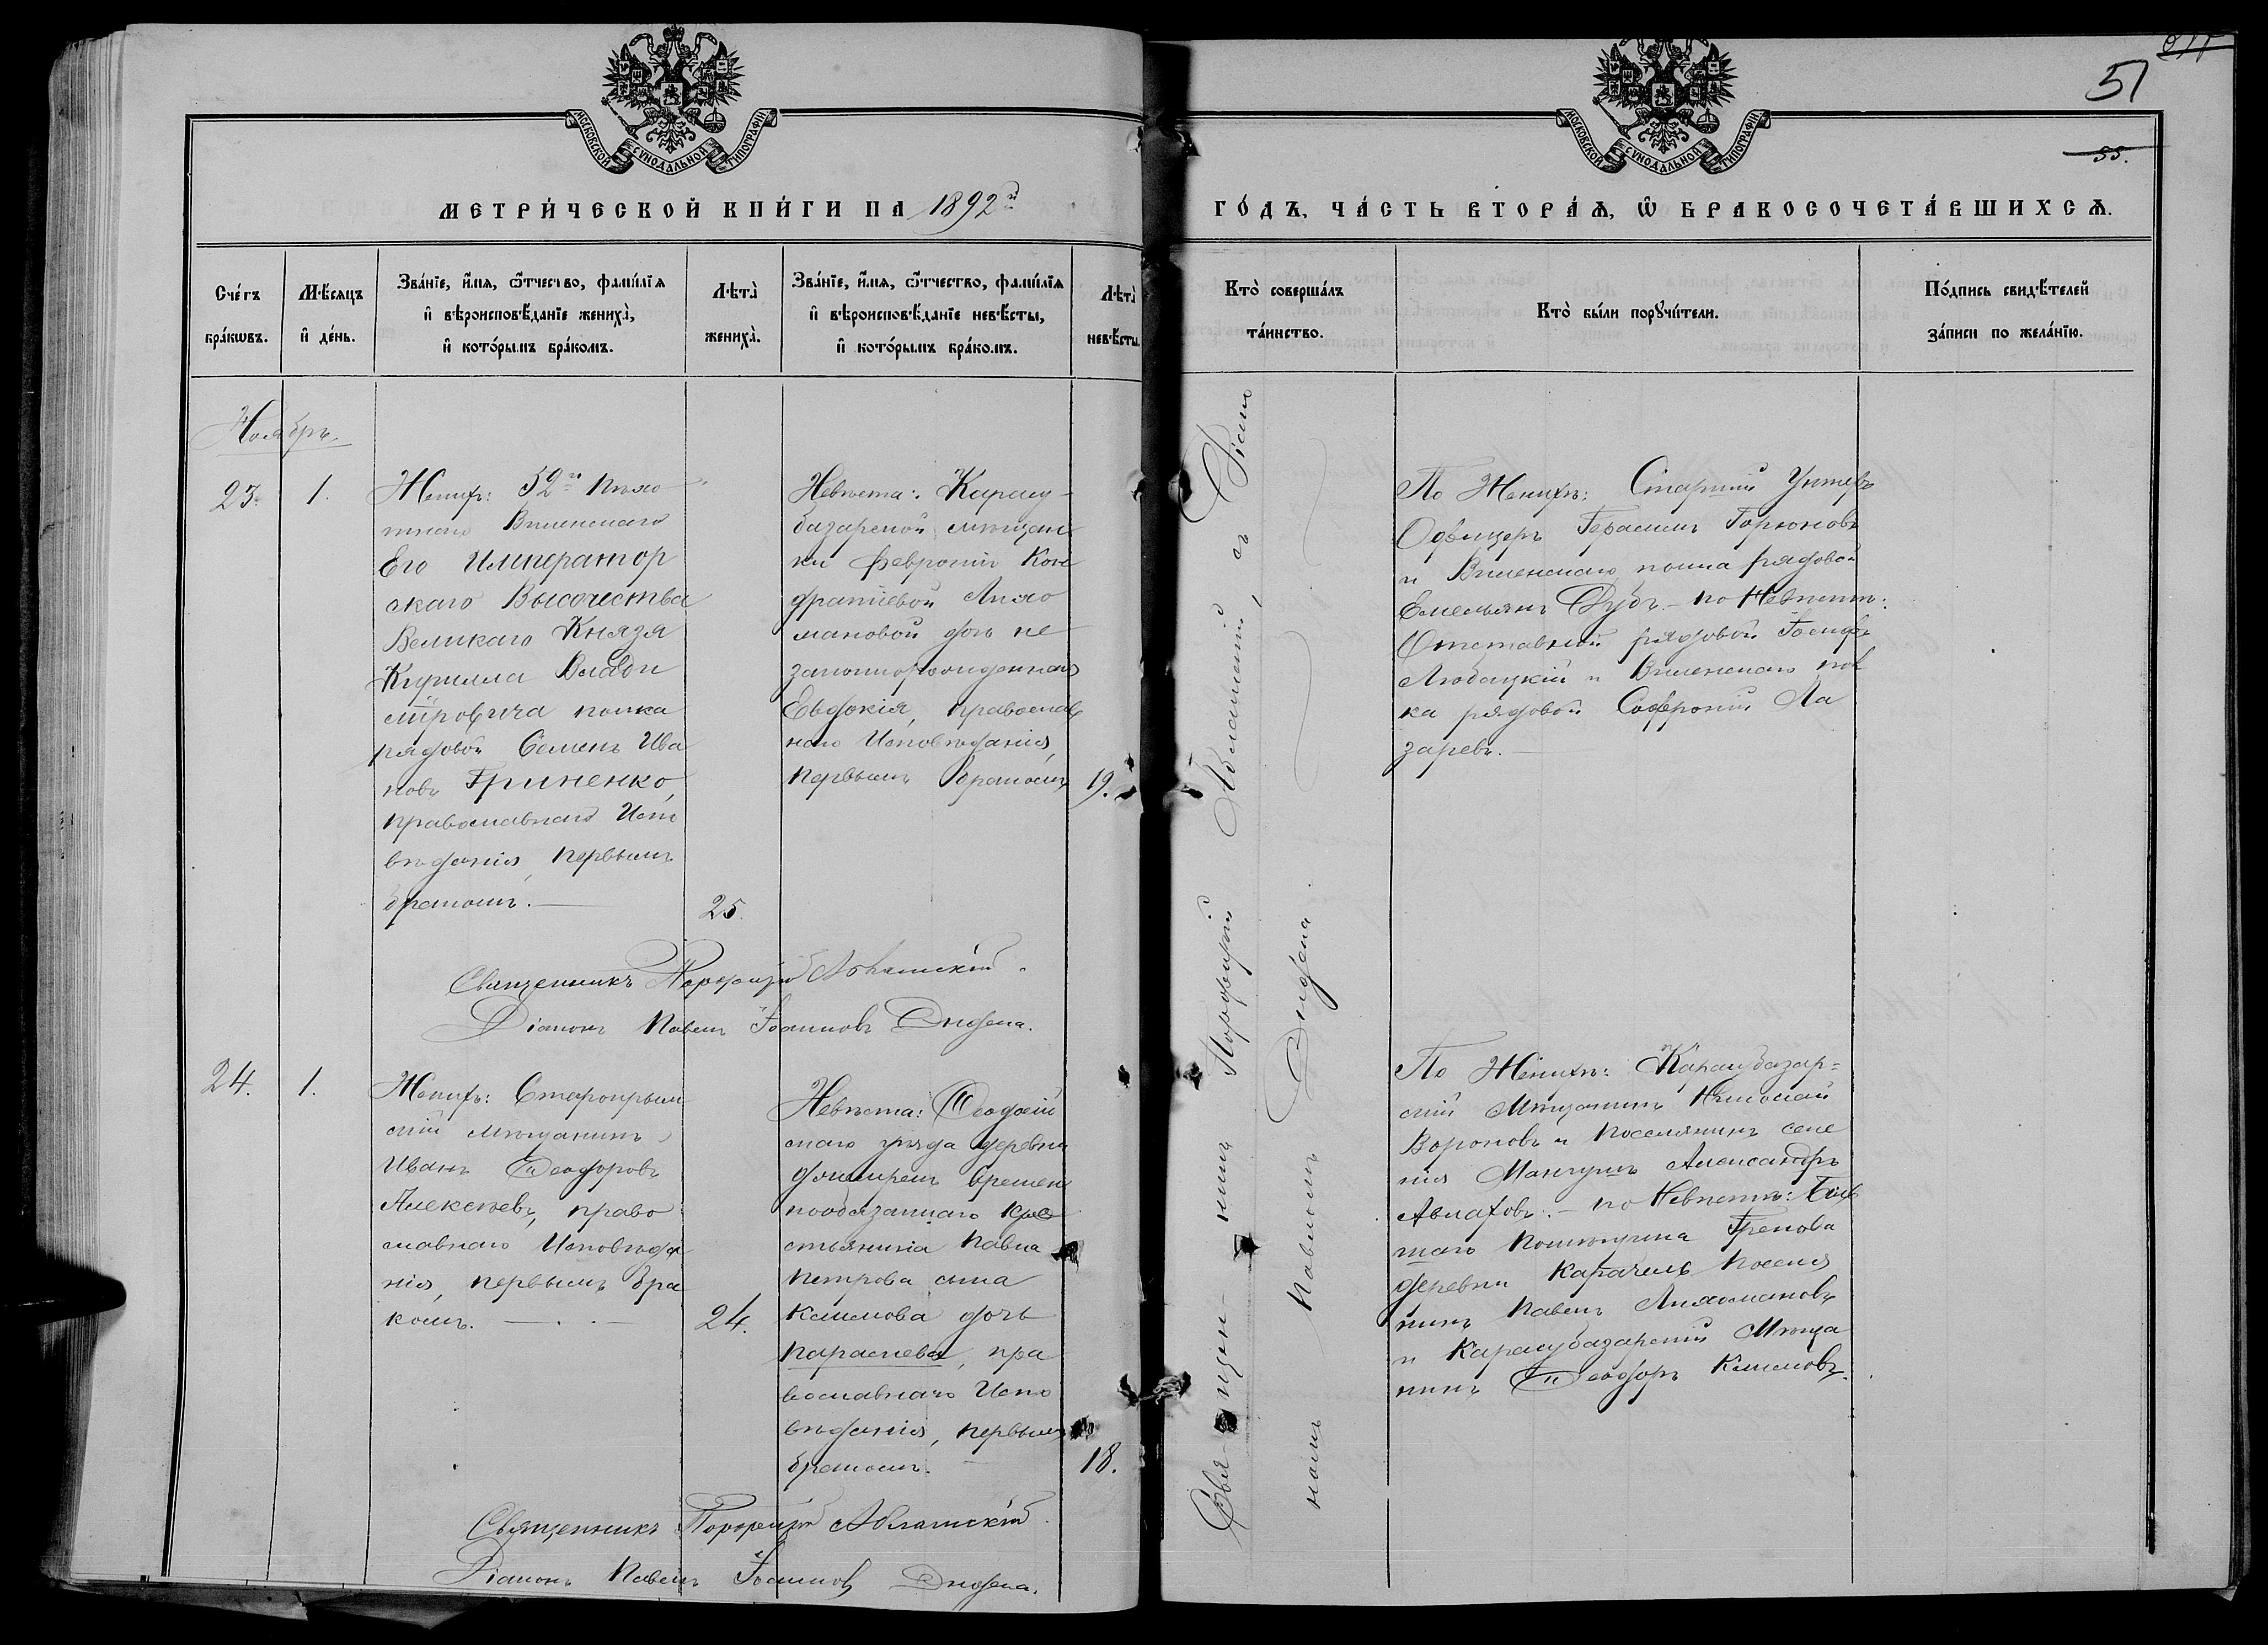 51
55.
МОСКОВСКОЙ СѴНОДАЛЬНОЙ ТИПОГРАФІИ
МОСКОВСКОЙ СѴНОДАЛЬНОЙ ТИПОГРАФІИ
МЕТРИ́ЧЕСКОЙ КНИ́ГИ НА 1892й
ГО́ДЪ, ЧА́СТЬ ВТОРА́Ѧ, Ѽ БРАКОСОЧЕТА́ВШИХСѦ.
Сче́тъ
бра́кѡвъ.
Мѣ́сяцъ
и҆ де́нь.
Зва́нїе, и҆́мѧ, ѻ҆́тчество, фами́лїѧ
и҆ вѣроисповѣ́данїе жениха̀,
и҆ кото́рымъ бра́комъ.
Лѣ́та̀
жениха̀.
Зва́нїе, и҆́мѧ, ѻ҆́тчество, фами́лїѧ
и҆ вѣроисповѣ́данїе невѣ́сты,
и҆ кото́рымъ бра́комъ.
Лѣ́та̀
невѣ́сты.
Кто̀ соверша́лъ
та́инство.
Кто̀ бы́ли порꙋчи́тели.
По́дпись свидѣ́телей
за́писи по жела́нїю.
Ноябрь.
23.
1.
Женихъ: 52й пѣхо
тнаго Виленскаго
Его Император
скаго Высочества
Великаго Князя
Кирилла Влади
міровича полка
рядовой Семенъ Ива
новъ Гриненко,
православнаго Испо
вѣданія, первымъ
бракомъ. —
25.
Невѣста: Карасу-
базарской мѣщан
ки Февроніи Кон
дратіевой Лихо
мановой дочь не
законнорожденная
Евдокія, православ
наго Исповѣданія,
первымъ бракомъ,
19.
Священ-никъ Порфирій Абламскій, съ Діако
номъ Павломъ Диdена.
По Женихѣ: Старшій Унтеръ
Офицеръ Герасимъ Горюновъ
и Виленскаго полка рядовой
Емельянъ Дубъ. — по Невѣстѣ:
Отставной рядовой Іосифъ
Любецкій и Виленскаго пол
ка рядовой Софроній Ла
заревъ. —
Священникъ Порфирій Абламскій.
Діаконъ Павелъ Іоанновъ
24.
1.
Женихъ: Старокрым
скій мѣщанинъ
Иванъ Ѳеодоровъ
Алексѣевъ, право
славнаго Исповѣда
нія, первымъ бра
комъ. —
24.
Невѣста: Ѳеодосій
скаго уѣзда деревни
времен
нообязаннаго кре
стьянина Павла
Петрова сына
Климова дочь
Параскева, пра
вославнаго Испо
вѣданія, первымъ
бракомъ.
18.
По Женихѣ: Карасубазар=
скій Мѣщанинъ Николай
Вороновъ и поселянинъ селе
нія Мангушъ Александръ
Авлаховъ. — по Невѣстѣ:
Грекова
деревни Карачель поселя
нинъ Павелъ Лихомановъ
и Карасубазарскій Мѣща
нинъ Ѳеодоръ Климовъ.
Священникъ Порфирій Абламскій.
Діаконъ Павелъ Іоанновъ